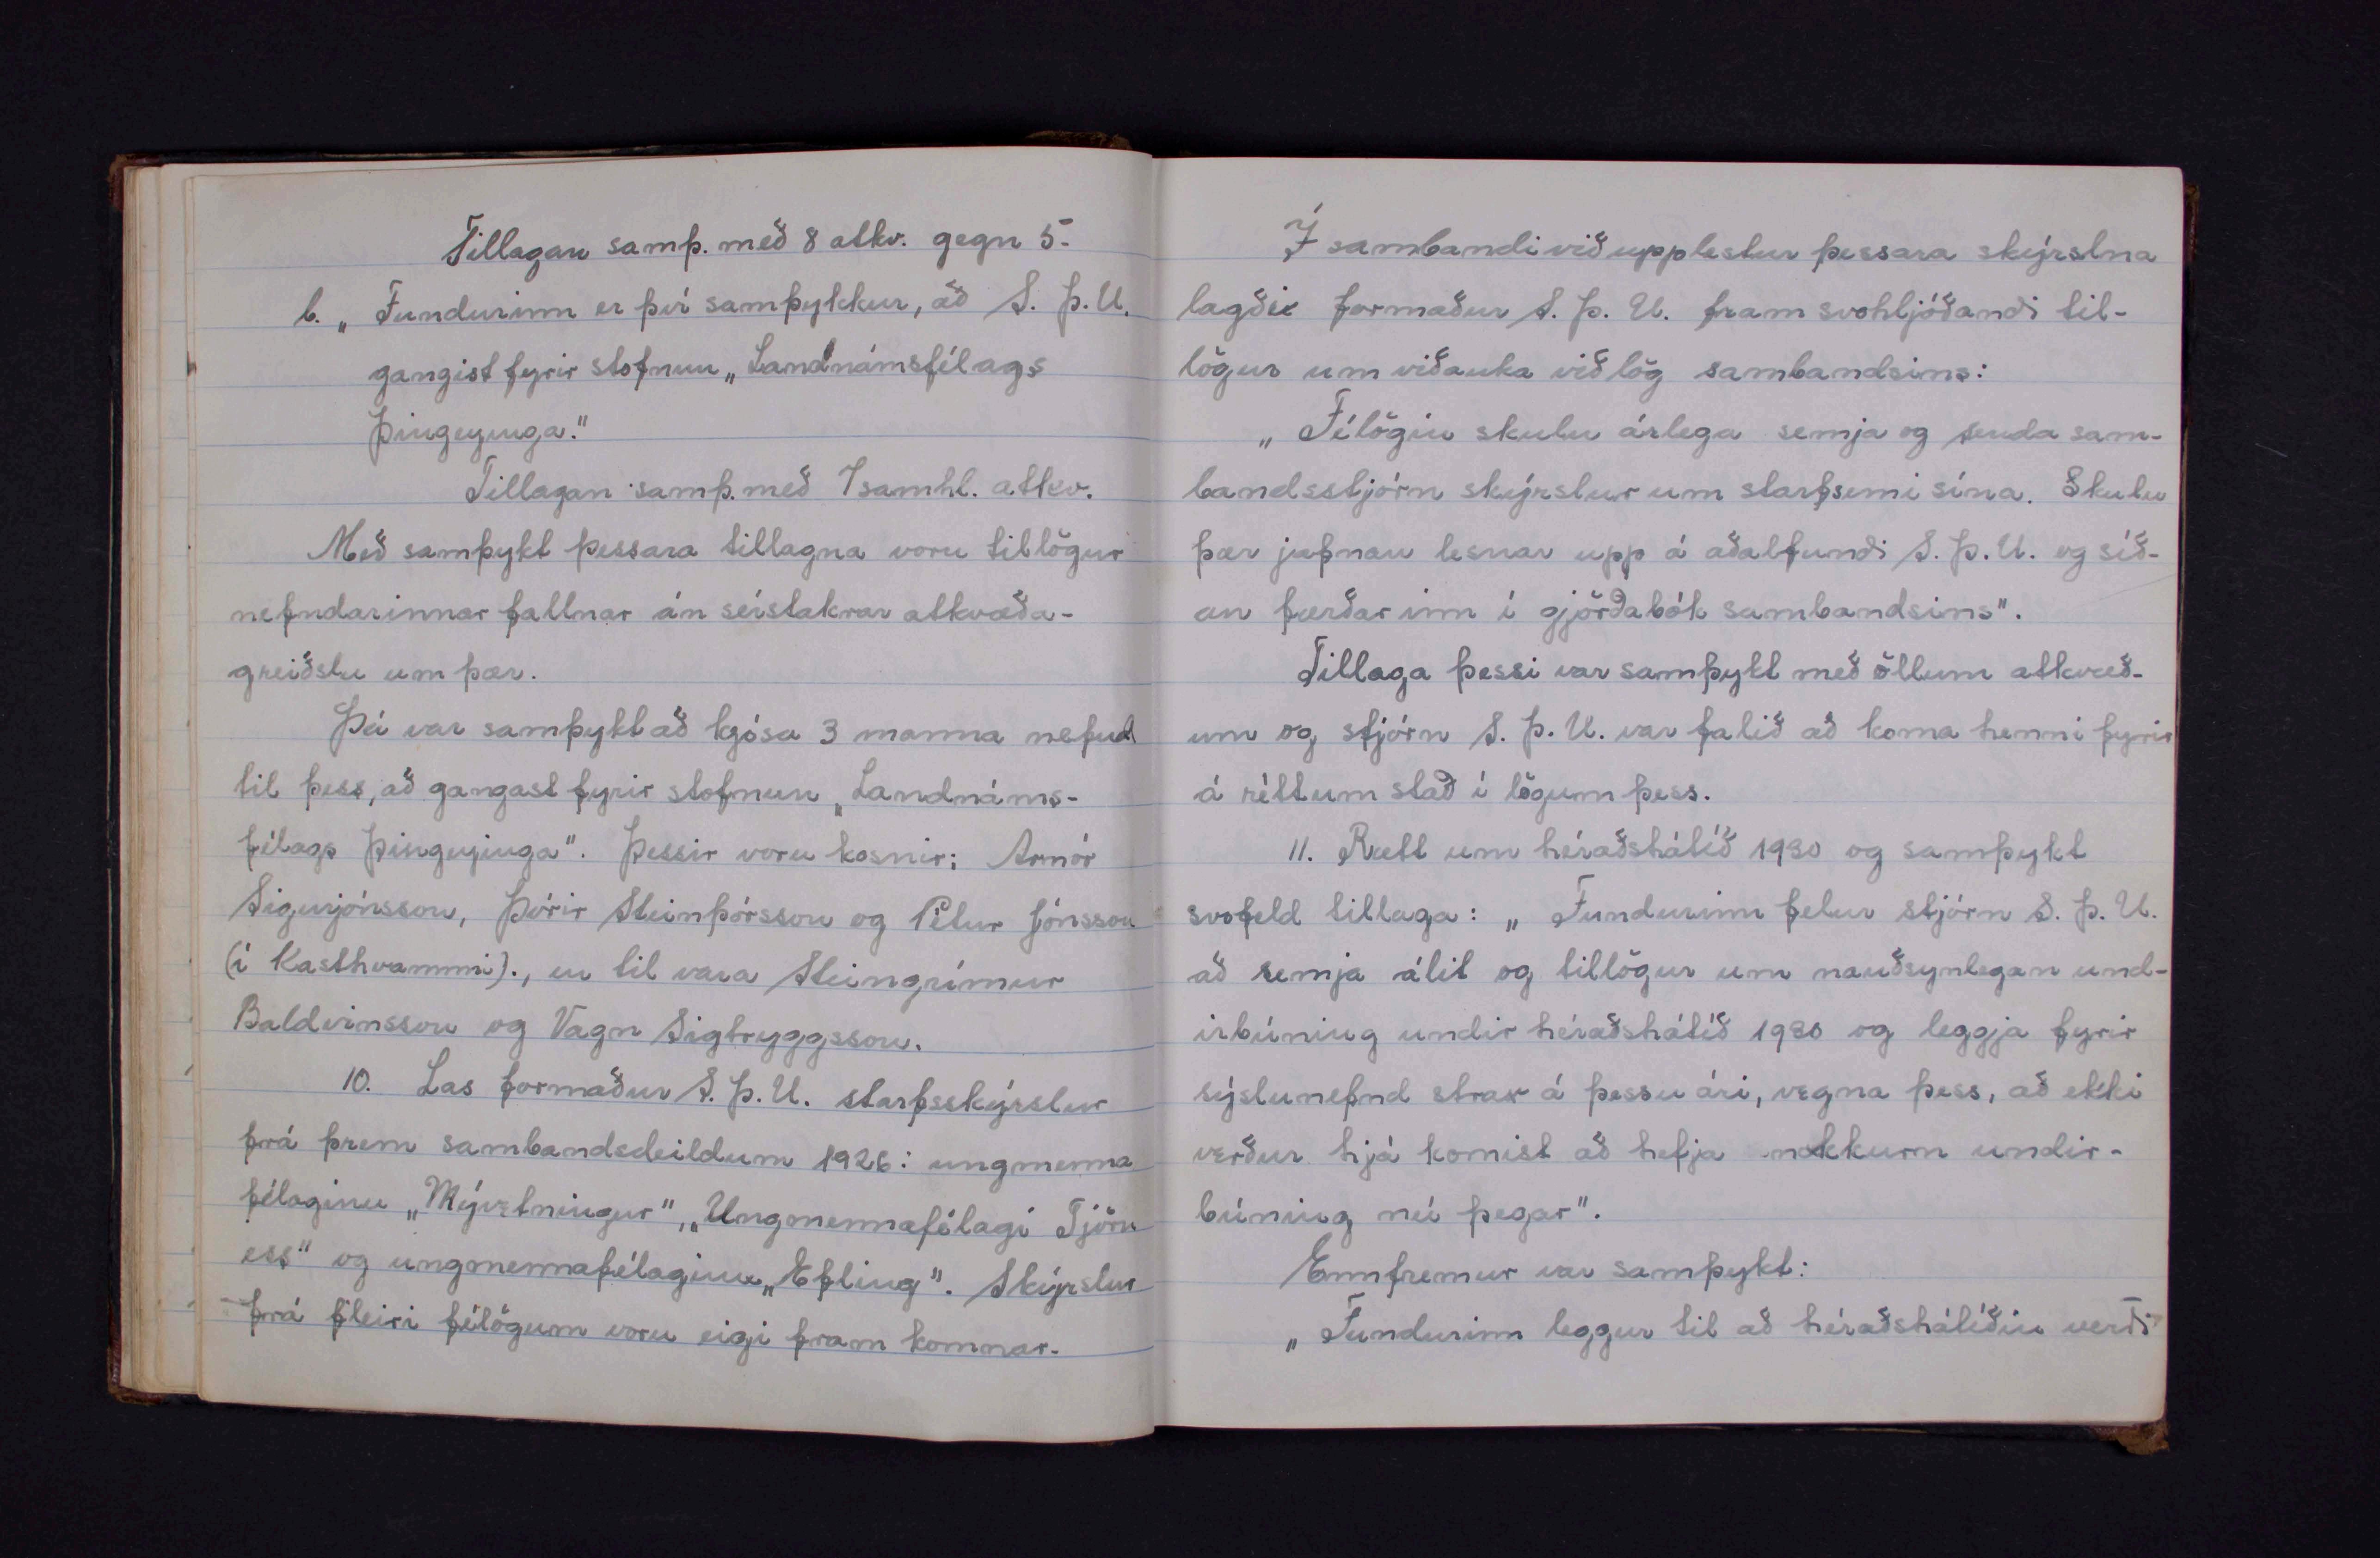 Tillagan samþ. með 8 atkv. gegn 5.
b. „Fundurinn er því samþykkur, að S. Þ. U.
gangist fyrir stofnun „Landnámsfélags
Þingeyinga."
Tillagan samþ. með 7 samhl. atkv.
Með samþykt þessara tillagna voru tillögur
nefndarinnar fallnar án sérstakrar atkvæða-
greiðslu um þær.
Þá var samþykt að kjósa 3 manna nefnd
til þess, að gangast fyrir stofnun „Landnáms-
félags Þingeyinga". Þessir voru kosnir: Arnór
Sigurjónsson, Þórir Steinþórsson og Pétur Jónsson
(í Kasthvammi)., en til vara Steingrímur
Baldvinsson og Vagn Sigtryggsson.
10. Las formaður S. Þ. U. starfsskýrslur
frá þrem sambandsdeildum 1926: ungmenna
félaginu „Mývetningur", „Ungmennafélagi Tjörn
ess" og ungmennafélaginu „Efling". Skýrslur
frá fleiri félögum voru eigi fram komnar.
Í sambandi við upplestur þessara skýrslna
lagði formaður S. Þ. U. fram svohljóðandi til-
lögur um viðauka við lög sambandsins:
„Félögin skulu árlega semja og senda sam-
bandsstjórn skýrslur um starfsemi sína. Skulu
þær jafnan lesnar upp á aðalfundi S. Þ. U. og síð-
an færðar inn í gjörðabók sambandsins".
Tillaga þessi var samþykt með öllum atkvæð-
um og stjórn S. Þ. U. var falið að koma henni fyrir
á réttum stað í lögum þess.
11. Rætt um héraðshátíð 1930 og samþykt
svofeld tillaga: „Fundurinn felur stjórn S. Þ. U.
að semja álit og tillögur um nauðsynlegan und-
irbúning undir héraðshátíð 1930 og leggja fyrir
sýslunefnd strax á þessu ári, vegna þess, að ekki
verður hjá komist að hefja nokkurn undir-
búning nú þegar".
Ennfremur var samþykt:
„Fundurinn leggur til að héraðshátíðin verði